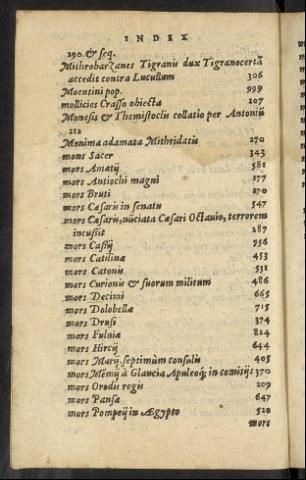 INDEX
290 & seq.
Mithrobarzanes Tigranis dux Tigranocertã
accedit contra Lucullum 306
Moentini pop. 999
mollicies Crasso obiecta 207
Monesis & Themistoclis collatio per Antoniũ
212
Monima adamata Mithridatis 270
mons Sacer 343
mors Amatij 581
mors Antiochi magni 177
mors Bruti 870
mors Cæsaris in senatu 547
mors Cæsaris, nũciata Cæsari Octauio, terrorem
incussit 287
mors Cassij 756
mors Catilinæ 453
mors Catonis 531
mors Curionis & suorum militum 486
mors Decimi 665
mors Dolobellæ 715
mors Drusi 374
mors Fuluiæ 824
mors Hircij 644
mors Marij, septimùm consulis 405
mors Mẽmij à Glaucia Apuleoq́; in comitijs 370
mors Orodis regis 209
mors Pansæ 647
mors Pompeij in Ægypto 520
mors